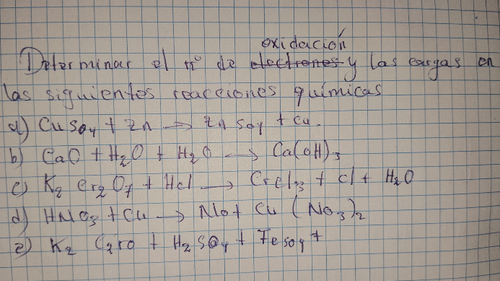 oxidación
Determinar el nº de electrones y las cargas en
las siguientes reacciones químicas
a) CuSO4 + Zn → ZnSO4 + Cu.
b) CaO + H2O + H2O → Ca(OH)3
c) K2 Cr2O7 + Hcl → CrCl3 + cl + H2O
d) HNO3 + Cu → No + Cu (No3)2
e) K2 C2ro + H2SO4 + FeSO4 +